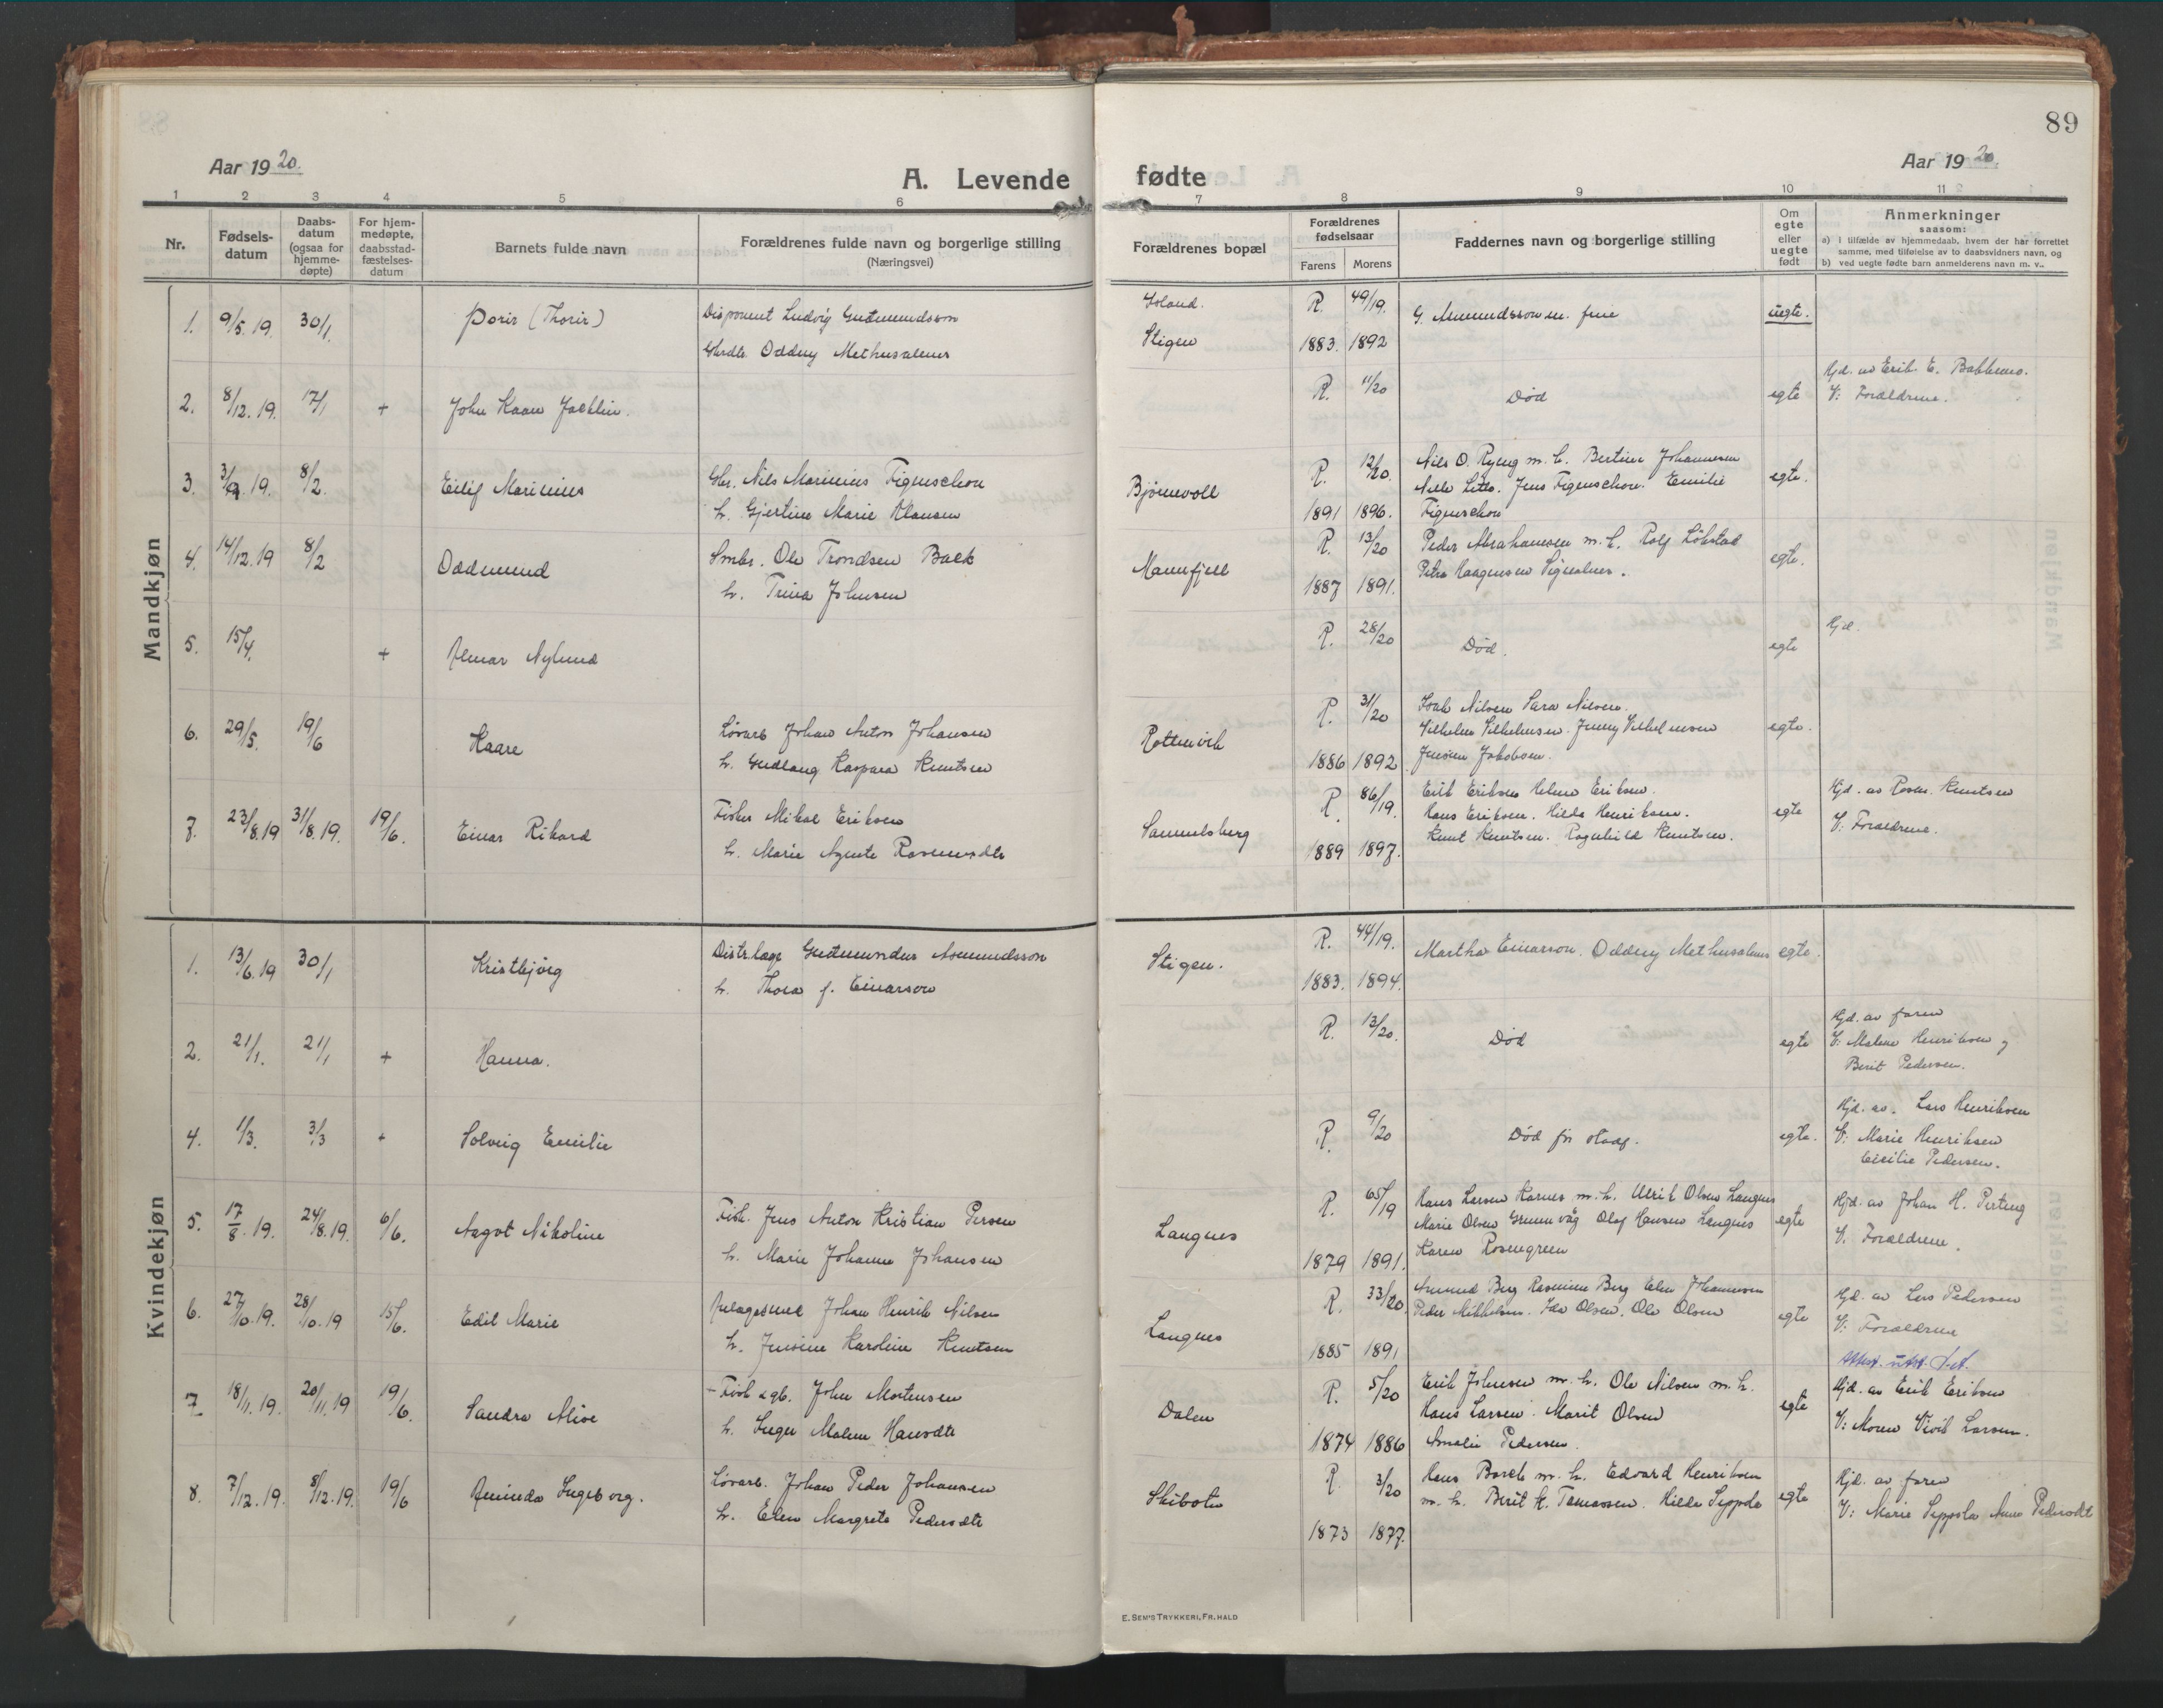 89
Aar 1920.
Aar 1920.
A. Levende fødte
1 2 3 4 5 6 7 8 9 10 11
Nr.
Fødsels-
datum
Daabs-
datum
(ogsaa for
hjemme-
døpte)
For hjem-
medøpte,
daabsstad-
fæstelses-
datum
Barnets fulde navn
Forældrenes fulde navn og borgerlige stilling
(Næringsvei)
Forældrenes bopæl
Forældrenes
fødselsaar
Farens Morens
Faddernes navn og borgerlige stilling
Om
egte
eller
uegte
født
Anmerkninger
saasom:
a) i tilfælde av hjemmedaab, hvem der har forrettet
samme, med tilføielse av to daabsvidners navn, og
b) ved uegte fødte barn anmelderens navn m. v..
Mandkjøn
1. 9/5.19. 30/1. Þorir (Thorir) Disponent Ludvig Gudmundsson Island. R. 49/19. uegte.
Oddny Methusalems Stigen 1883. 1892
2. 8/12.19. 17/1 + John Kaare R. 11/20 Død egte Hjd. av Erik E.
V: Forældrene.
3. 19. 8/2. Eilif Marinius Gbr. Nils Marinius Figenschou Bjørnevoll R. 12/20. Nils O. Ryeng m. h. Bertine Johannesen egte.
Jens Figenschou. Emilie
h. Gjertine Marie Hansen 1891 1896. Figenschou
4. 14/12.19 8/2 Oddmund Smbr. Ole Trondsen Bæk Mannfjell R. 13/20 Peder Abrahamsen m. h. Rolf egte.
h. Trina Johnsen 1887 1891. Petra Haagensen Signalnes.
5. 15/4. + Nylund R. 28/20 Død. egte Hjd.
6. 29/5. 19/6 Kaare Johan Anton Johansen R. 31/20 Isak Nilsen Sara Nilsen. egte.
h. Gudlaug Kaspara Knutsen 1886 1892 Jensine Jakobsen.
7. 23/8.19 31/8.19. 19/6. Einar Rikard Fisker Mikal Eriksen Samuelsberg R. 86/19. Erik Eriksen egte Hjd. av Knutsen
Hans Eriksen. Hilda Henriksen. V: Forældrene.
h. Marie Agnete 1889 1897. Knut Knutsen. Ragnhild Knutsen.
Kvindekjøn
1. 13/6.19 30/1 Kristbjörg Distr.læge Gudmundur Asmundsson Stigen. R. 44/19. Martha Einarson. Oddny Methusalems egte.
h. Thora f. Einarson 1883. 1894.
2. 21/1. 21/1 + Hanna. R. 13/20. Død egte Hjd. av faren
V: Malene Henriksen og
Berit Pedersen.
4. 1/3. 3/3 + Solveig Emilie R. 9/20 Død før stadf. egte. Hjd. av. Lars Henriksen
V: Marie Henriksen
Cecilie Pedersen.
5. 17/8.19. 24/8.19. 6/6. Aagot Nikoline Fisk. Jens Anton Kristian Persen Langnes R. 65/19 Hans Larsen Karnes m. h. Ulrik Olsen Langnes egte Hjd. av Johan H. Perteng
Marie Olsen Olaf Hansen Langnes V. Forældrene.
h. Marie Johanne Johansen 1879 1891. Karen Rosengreen
6. 27/10.19. 28/10.19 15/6. Edil Marie Johan Henrik Nilsen Langnes R. 33/20. Amund Berg Rasmine Berg Elen Johannesen egte Hjd. av Lars Pedersen
Peder Mikkelsen. Olsen. Ole Olsen V: Forældrene
h. Jensine Karoline Knutsen 1885 1891
Attest. utst.
7 18/11.19. 20/11.19 19/6. Sandra Alise John Mortensen Dalen R. 5/20 Erik Johnsen m. h. Ole Nilsen m. h. egte Hjd. av Erik Eriksen
h. Inger Malene Hansdtr Hans Larsen. Marit Olsen V: Moren Larsen.
1874 1886 Amalie Pedersen.
8. 7/12.19. 8/12.19. 19/6 Ingeborg. Johan Peder Johansen Skibotn R. 3/20 Hans m. h. Edvard Henriksen egte Hjd. av faren
h. Elen Margrete Pedersdtr m. h. Berit H. Tomassen. Hilda Seppola V: Marie Seppola Anna Pedersdt
1873 1877.
E. SEM'S TRYKKERI, FR.HALD